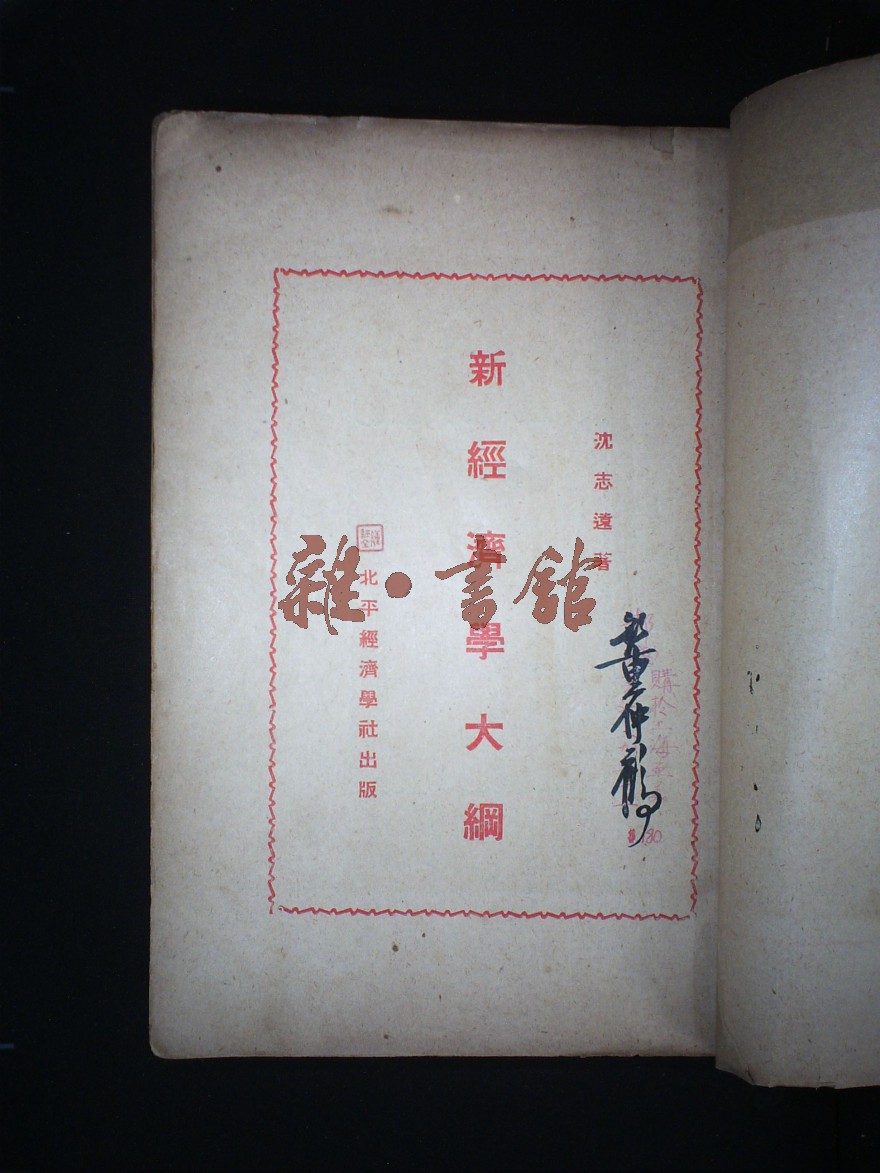 沈志遠著
新經濟學大綱
北平經濟學社出版
雜·書館
購於上海